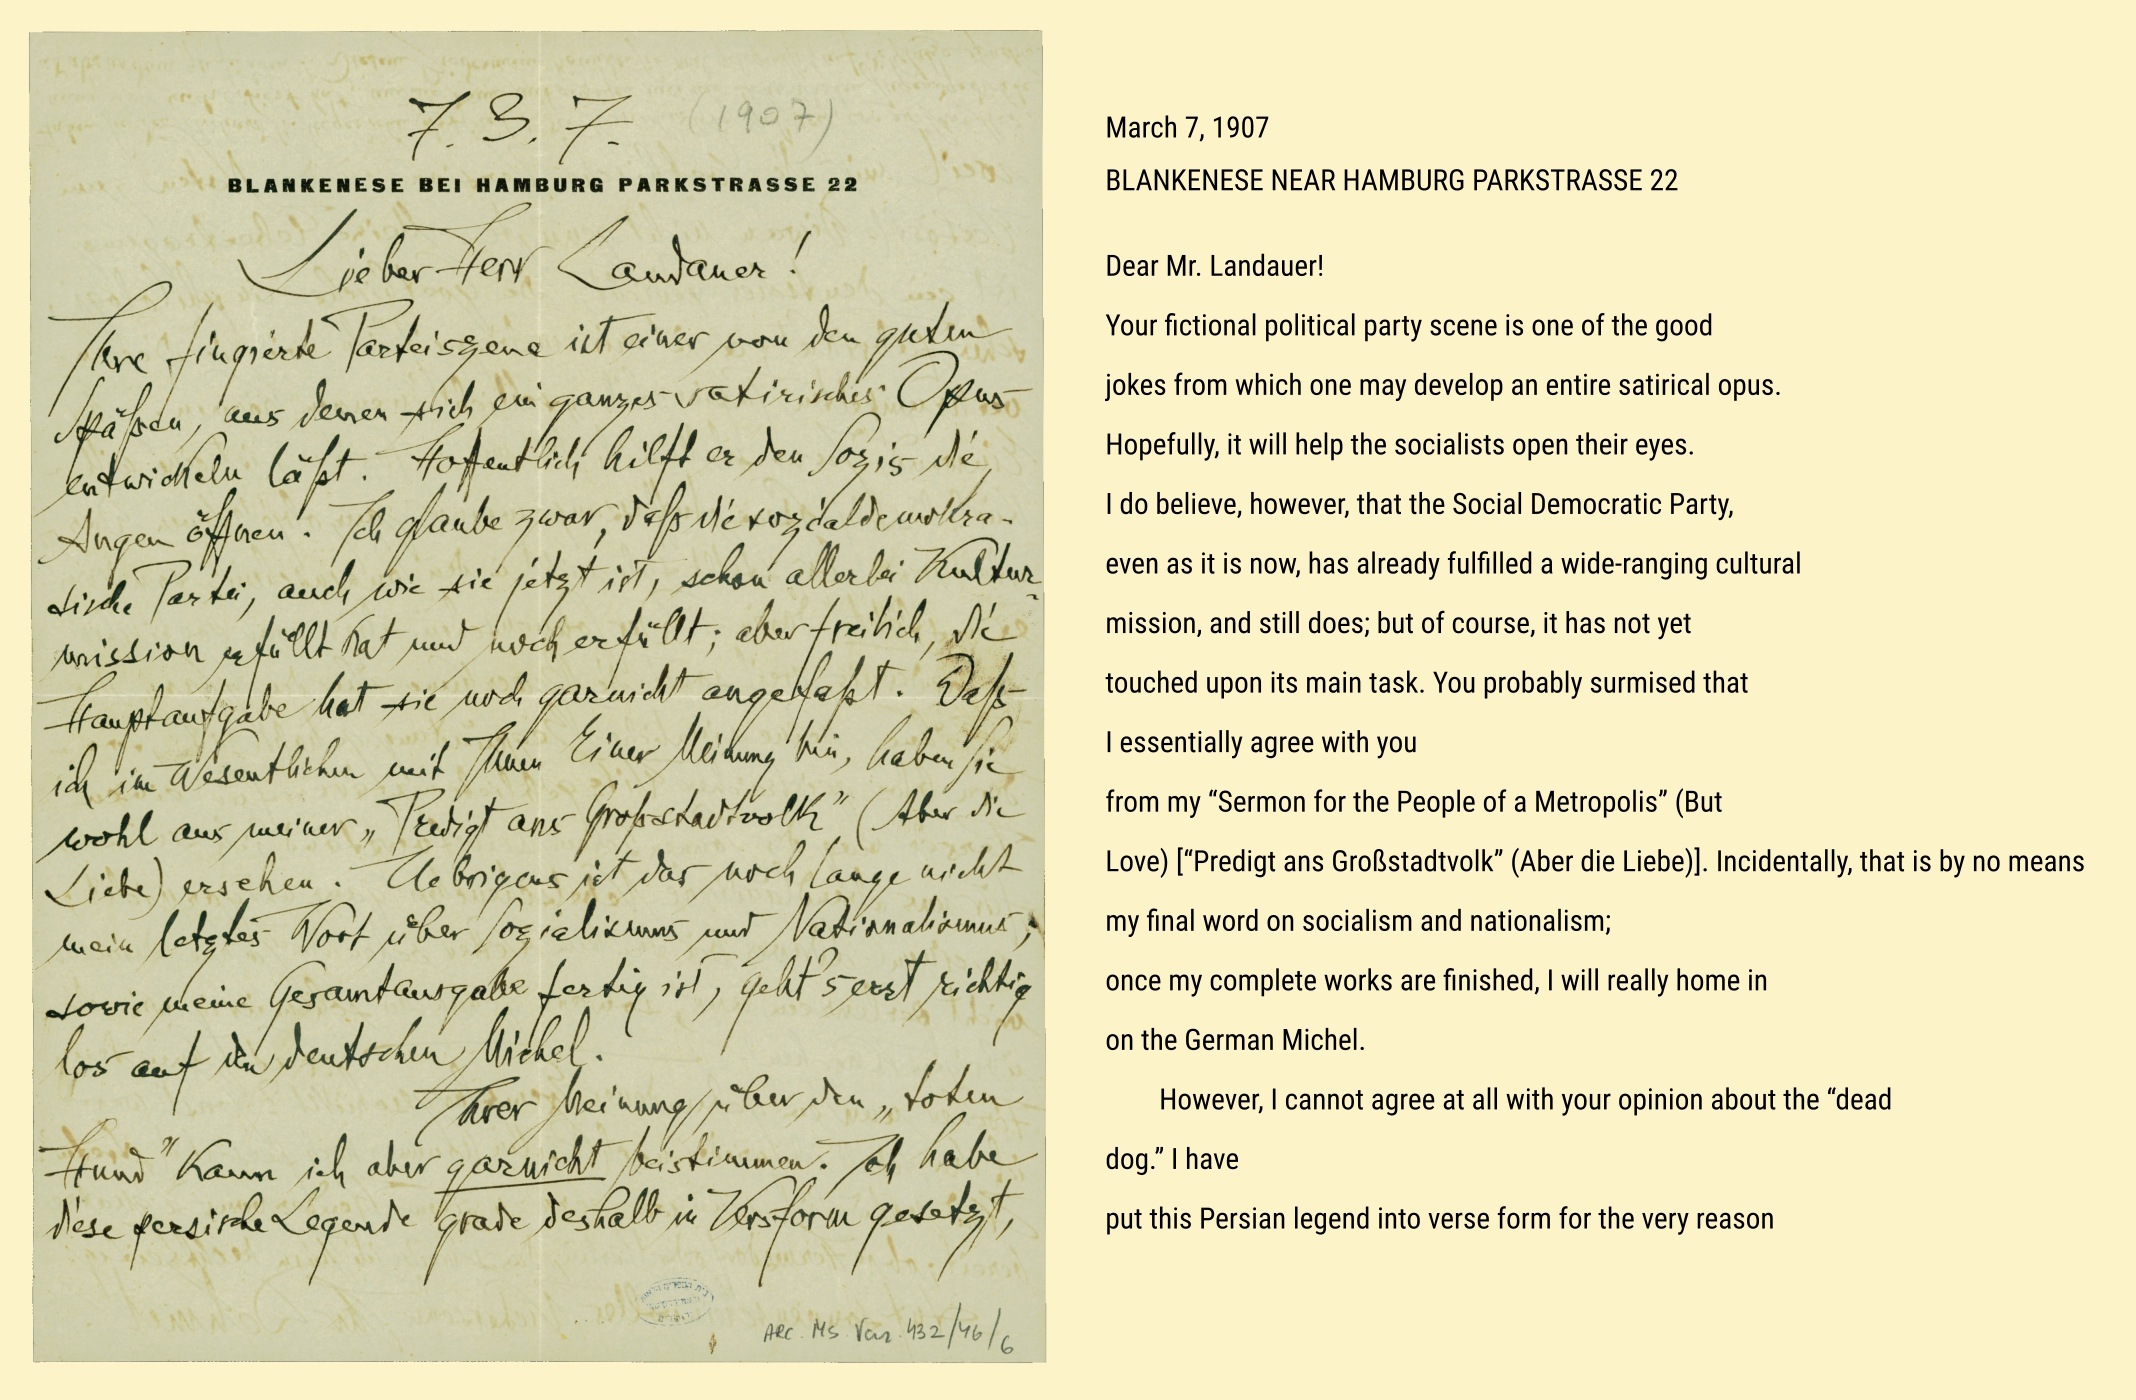 7. 3. 7. (1907)
BLANKENESE BEI HAMBURG PARKSTRASSE 22
Lieber Herr Landauer!
Ihre fingierte Parteiszene ist einer von den guten
Späßen, aus denen sich ein ganzes satirisches Opus
entwickeln läßt. Hoffentlich hilft er den Sozis die
Augen öffnen. Ich glaube zwar, daß die sozialdemokra-
tische Partei, auch wie sie jetzt ist, schon allerlei Kultur-
mission erfüllt hat und noch erfüllt; aber freilich, die
Hauptaufgabe hat sie noch garnicht angefaßt. Daß
ich im Wesentlichen mit Ihnen Einer Meinung bin, haben Sie
wohl aus meiner „Predigt ans Großstadtvolk” (Aber die
Liebe) ersehen. Uebrigens ist das noch lange nicht
mein letztes Wort über Sozialismus und Nationalismus;
sowie meine Gesamtausgabe fertig ist, geht's erst richtig
los auf den deutschen Michel.
Ihrer Meinung über den „toten
Hund” kann ich aber garnicht beistimmen. Ich habe
diese persische Legende grade deshalb in Versform gesetzt,
ARC. Ms. Var. 432/46/6
March 7, 1907
BLANKENESE NEAR HAMBURG PARKSTRASSE 22
Dear Mr. Landauer!
Your fictional political party scene is one of the good
jokes from which one may develop an entire satirical opus.
Hopefully, it will help the socialists open their eyes.
I do believe, however, that the Social Democratic Party,
even as it is now, has already fulfilled a wide-ranging cultural
mission, and still does; but of course, it has not yet
touched upon its main task. You probably surmised that
I essentially agree with you
from my “Sermon for the People of a Metropolis” (But
Love) [“Predigt ans Großstadtvolk” (Aber die Liebe)]. Incidentally, that is by no means
my final word on socialism and nationalism;
once my complete works are finished, I will really home in
on the German Michel.
However, I cannot agree at all with your opinion about the “dead
dog.” I have
put this Persian legend into verse form for the very reason